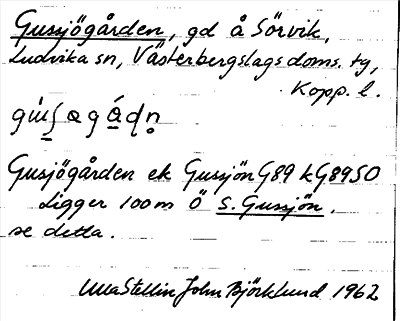 Gussjögården, gd å Sörvik,
Ludvika sn, Västerbergslags doms. tg,
Kopp. l.
Gusjögården ek Gussjön G89 k G8950
Ligger 100m Ö S. Gussjön.
se detta.
Ulla Stellin John Björklund 1962